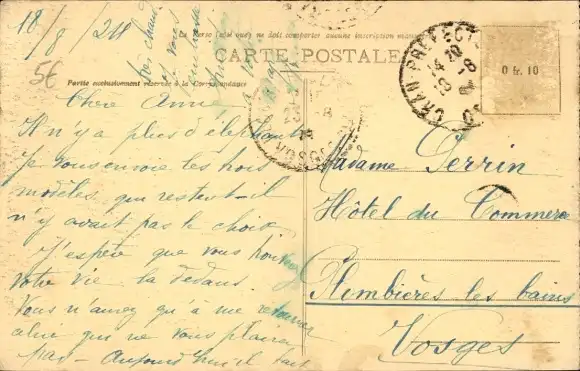 18/8/24
5€
très chaud
et vous
embrasse
Le Verso (seul que) ne doit comporter aucune inscription
CARTE POSTALE
Partie exclusivement réservée à la Correspondance
ORAN-PREFECT
14 10
19 -8
0 fr. 10
VOSGES
Chère Amie,
Il n'y a plus d'éléphants
Je vous envoie les trois
modèles qui restent il
n'y avait pas le choix.
J'espère que vous
votre vie là dedans.
Vous n'aurez qu'à me retourner
celui qui ne vous plaira
pas – Aujourd'hui il fait
Madame Perrin
Hôtel du Commerce
Plombières les bains
Vosges